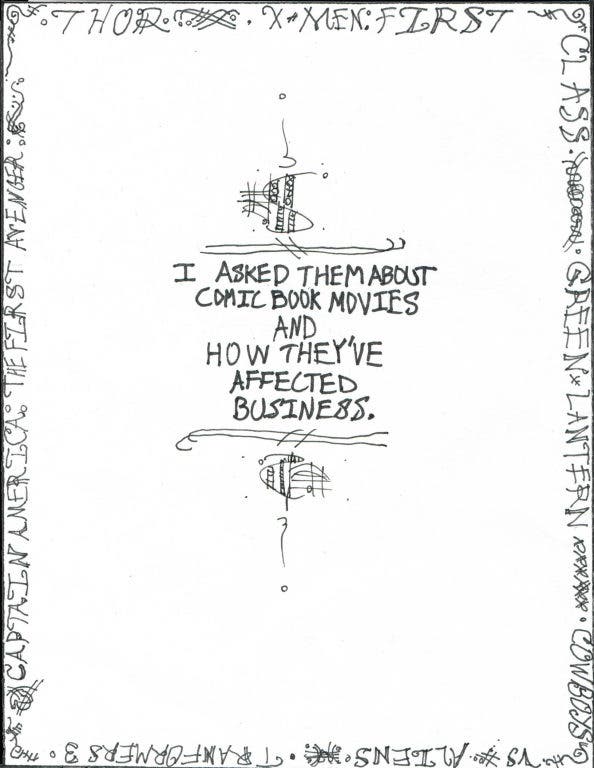 THOR · X-MEN: FIRST
CLASS · GREEN LANTERN · COWBOYS
VS ALIENS · TRANFORMERS 3 ·
CAPTAIN AMERICA: THE FIRST AVENGER
I ASKED THEM ABOUT
COMIC BOOK MOVIES
AND
HOW THEY'VE
AFFECTED
BUSINESS.